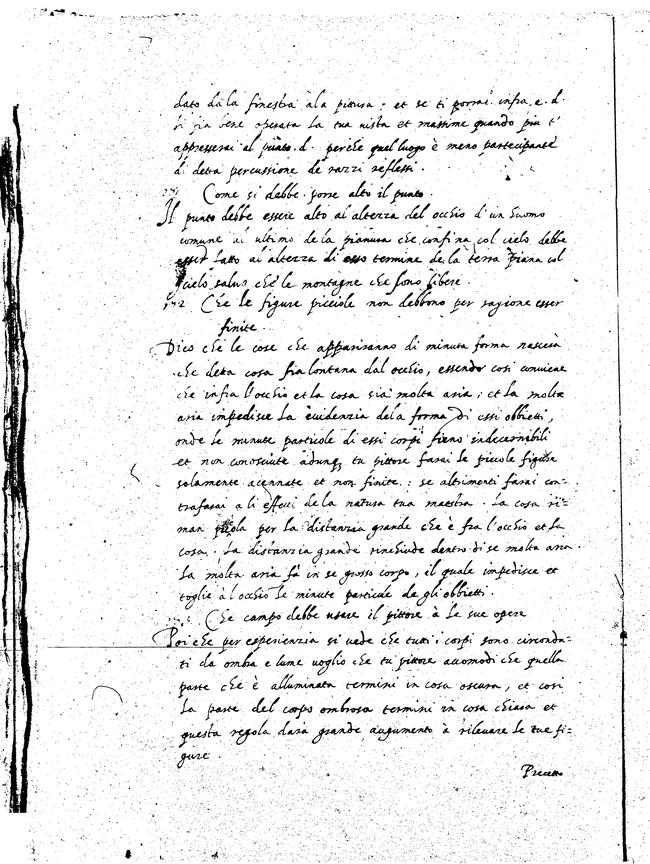 dato dala finestra ala pittura; et se ti porrai infra .e. d.
ti fia bene operata la tua uista et massime quando piu t'
appresserai al punto .d. perche quel luogo è meno partecipante
di detta percussione de razzi reflessi.
Come si debbe porre alto il punto.
Il punto debbe essere alto al alteza del occhio d'un huomo
comune al ultimo de la pianura che confina col cielo debbe
esser fatto al alteza di esso termine de la terra piana col
cielo saluo che le montagne che sono libere.
Che le figure picciole non debbono per ragione esser
finite.
Dico che le cose che appariranno di minuta forma nascerà
che detta cosa fia lontana dal occhio, essendo cosi conuiene
che infra l'occhio et la cosa sia molta aria; et la molta
aria impedisce la euidenzia dela forma di essi obbietti,
onde le minute particole di essi corpi fieno indecernibili
et non conosciute adunq, tu pittore farai le piccole figure
solamente acennate et non finite.: se altrimenti farai con=
trafarai a li effetti de la natura tua maestra. La cosa ri=
man picola per la distanzia grande che è fra l'occhio et la
cosa. La distanzia grande rinchiude dentro di se molta aria.
La molta aria fà in se grosso corpo, il quale impedisce et
toglie à l'occhio le minute particule de gli obbietti.
Che campo debbe usare il pittore à le sue opere
Poi che per esperienzia si vede che tutti i corpi sono circonda=
ti da ombra e lume uoglio che tu pittore accomodi che quella
parte che è alluminata termini in cosa oscura, et cosi
la parte del corpo ombrosa termini in cosa chiara et
questa regola darà grande augumento à rileuare le tue fi=
gure.
Precetto